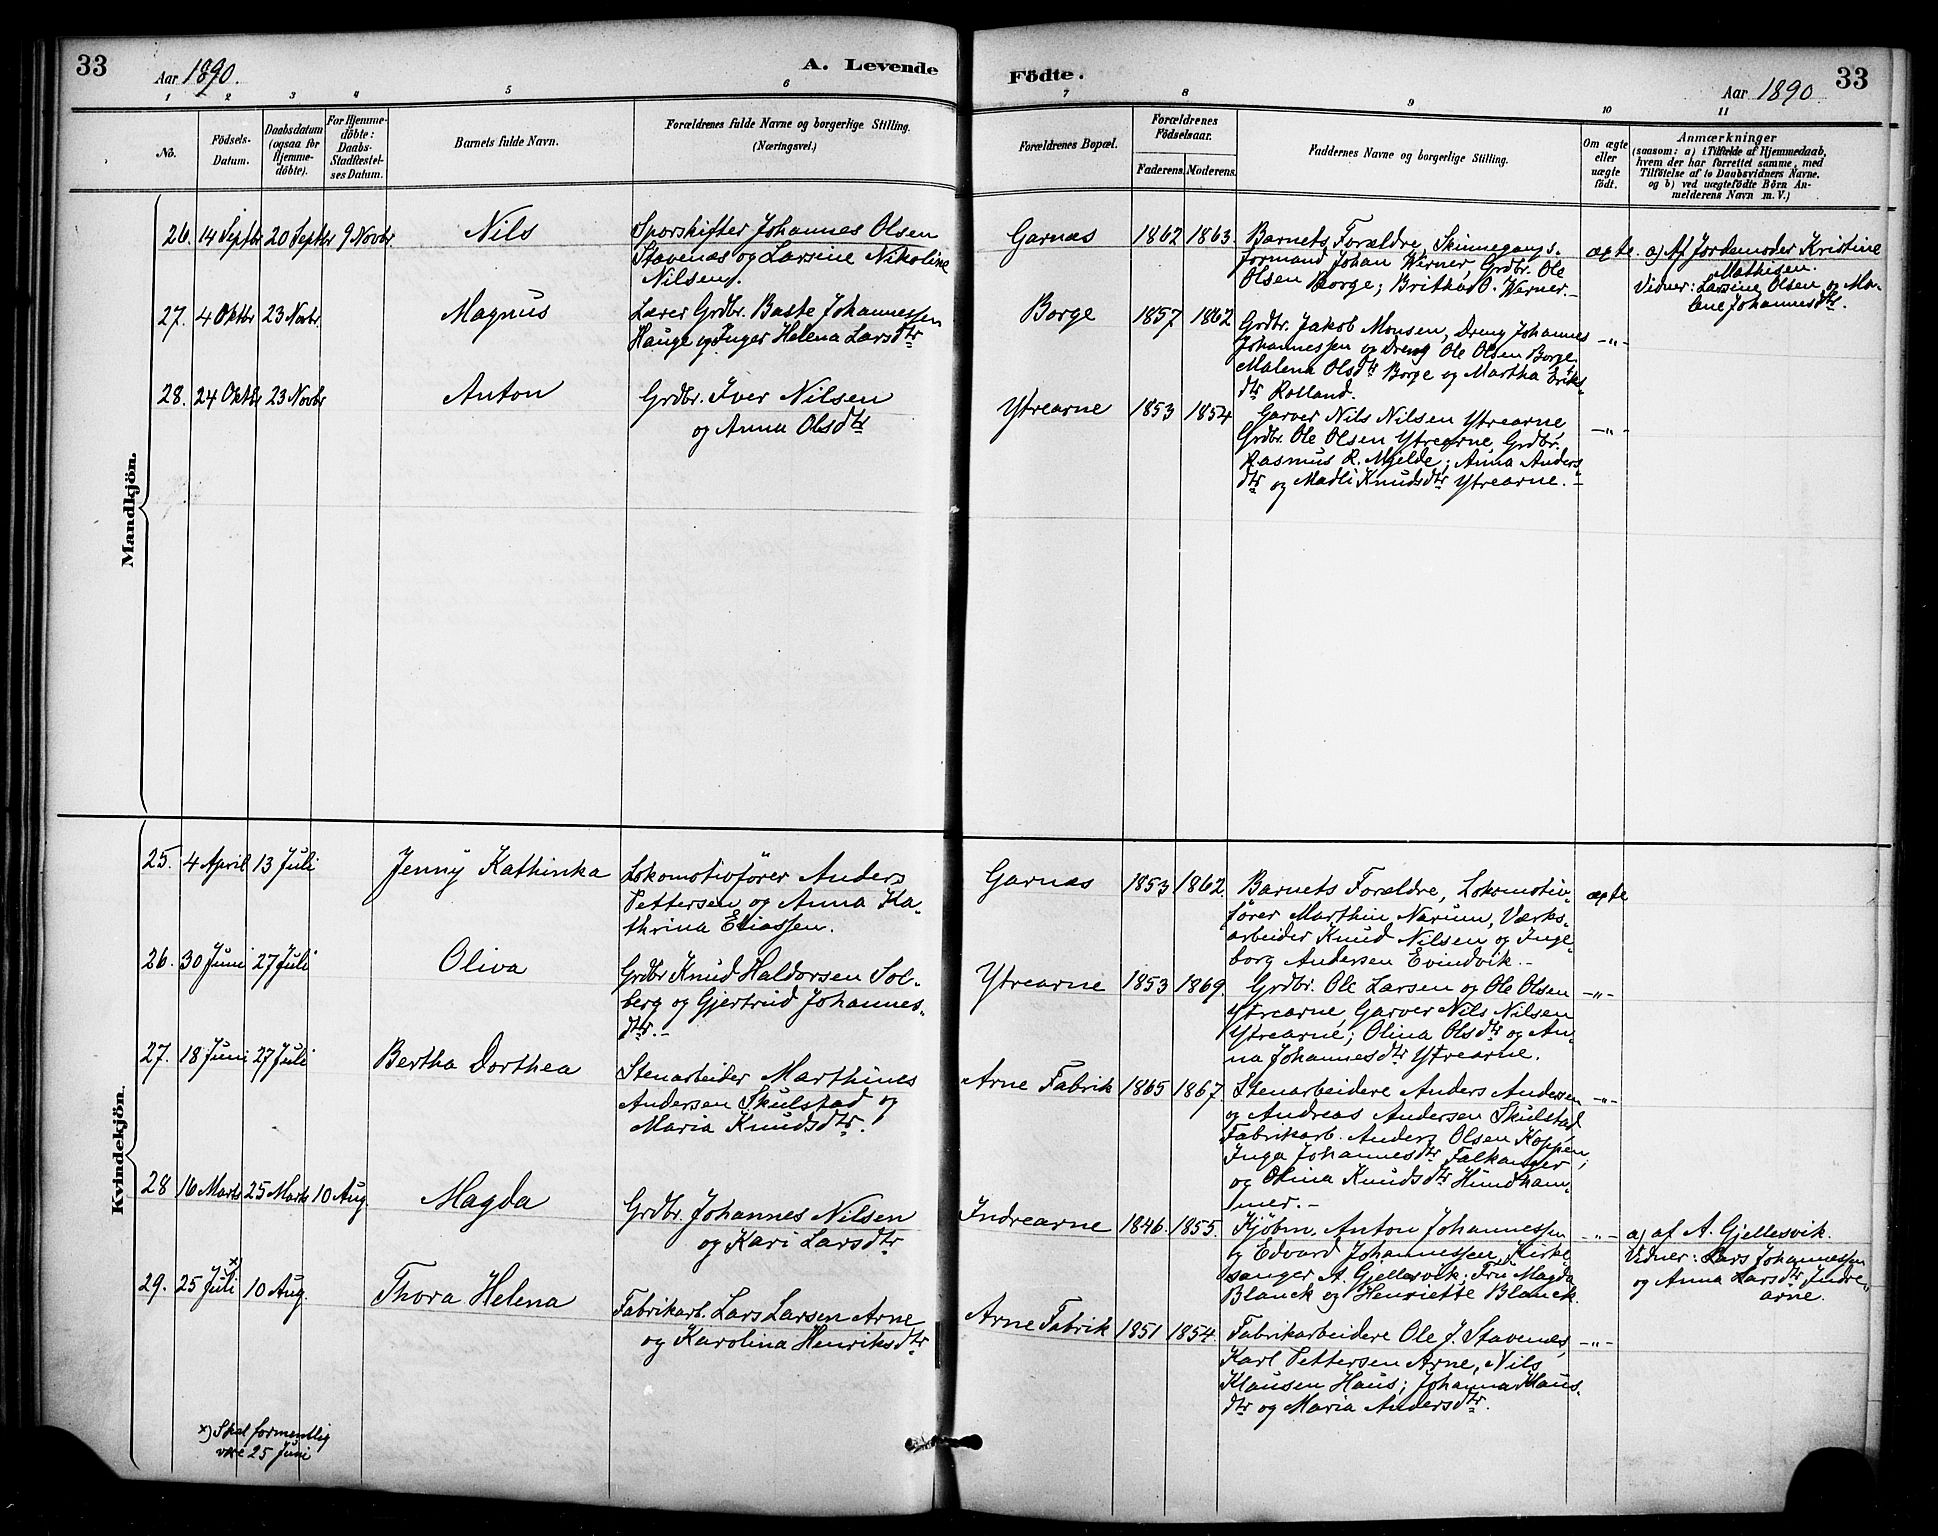 33
Aar 1890.
A. Levende
Födte.
Aar 1890
33
1 2 3 4 5 6 7 8 9 10 11
No.
Födsels-
Datum.
Daabsdatum
(ogsaa for
Hjemme-
døbte).
For Hjemme-
døbte:
Daabs-
Stadfæstel-
ses Datum.
Barnets fulde Navn.
Forældrenes fulde Navne og borgerlige Stilling.
(Næringsvei.)
Forældrenes Bopæl.
Forældrenes
Födselsaar.
Faderens. Moderens.
Faddernes Navne og borgerlige Stilling.
Om ægte
eller
uægte
født.
Anmærkninger
(saasom: a) i Tilfælde af Hjemmedaab,
hvem der har forrettet samme, med
Tilföielse af to Daabsvidners Navne.
og b) ved uægtefødte Börn An-
melderens Navn m. V.)
Mandkjön.
26. 14 Septbr 20 Septbr 9 Novbr. Nils
Sporskifter Johannes Olsen
Stavenæs og Larsine Nikoline
Nilsen.
Garnæs 1862 1863
Barnets Forældre, Skinnegangs-
formand Johan Werner, Grdbr. Ole
Olsen Borge; Britha O. Werner.-
ægte
a) Af Jordemoder Kristine
Mathisen.
Vidner: Larsine Olsen og Ma-
lene Johannesdtr.
27. 4 Oktbr 23 Novbr Magnus
Lærer Grdbr. Baste Johannessen
Hauge og Inger Helena Larsdtr
Borge 1857 1862
Grdbr. Jakob Monsen, Dreng Johannes
Johannessen og Dreng Ole Olsen Borge,
Malena Olsdtr Borge og Martha Eriks-
dtr Rolland.
-"-
28. 24 Oktbr 23 Novbr Anton
Grdbr. Iver Nilsen
og Anna Olsdtr
Ytrearne 1853 1854
Garver Nils Nilsen Ytrearne,
Grdbr. Ole Olsen Ytrearne, Grdbr.
Rasmus R. Mjelde; Anna Anders-
dtr og Madli Knudsdtr Ytrearne.-
-"-
Kvindekjön.
25. 4 April 13 Juli Jenny Kathinka
Lokomotivfører Anders
Pettersen og Anna Ka-
thrina Eliassen.
Garnæs 1853 1862.
Barnets Forældre, Lokomotiv-
fører Marthin Narum, Værks-
arbeider Knud Nilsen og Inge-
borg Andersen Evindvik.-
ægte
26. 30 Juni 27 Juli Oliva
Grdbr Knud Haldorsen Sol-
berg og Gjertrud Johannes-
dtr.-
Ytrearne 1853 1869.
Grdbr. Ole Larsen og Ole Olsen
Ytrearne, Garver Nils Nilsen
Ytrearne; Olina Olsdtr og An-
na Johannesdtr Ytrearne.
-"-
27. 18 Juni 27 Juli Bertha Dorthea
Stenarbeider Marthines
Andersen Skulstad og
Maria Knudsdtr.
Arne Fabrik 1865 1867
Stenarbeidere Anders Andersen
og Andreas Andersen Skulstad
Fabrikarb. Anders Olsen Koppen;
Inga Johannesdtr Falkanger
og Olina Knudsdtr Hundham-
mer.-
-"-
28 16 Marts 25 Marts 10 Aug. Magda
Grdbr. Johannes Nilsen
og Kari Larsdtr
Indrearne 1846. 1855.
Kjøbm. Anton Johannessen
og Edvard Johannessen, Kirke-
sanger A. Gjellesvik; Fru Magda
Blanck og Henriette Blanck.
-"-
a) af A. Gjellesvik.
Vidner: Lars Johannessen
og Anna Larsdtr Indre-
arne.
29. 25 Juli x) 10 Aug. Thora Helena
Fabrikarb. Lars Larsen Arne
og Karolina Henriksdtr
Arne Fabrik 1851 1854.
Fabrikarbeidere Ole J. Stavenæs,
Karl Pettersen Arne, Nils
Klausen Haus; Johanna Klaus-
dtr og Maria Andersdtr.
-"-
x) Skal formentlig
være 25 Juni